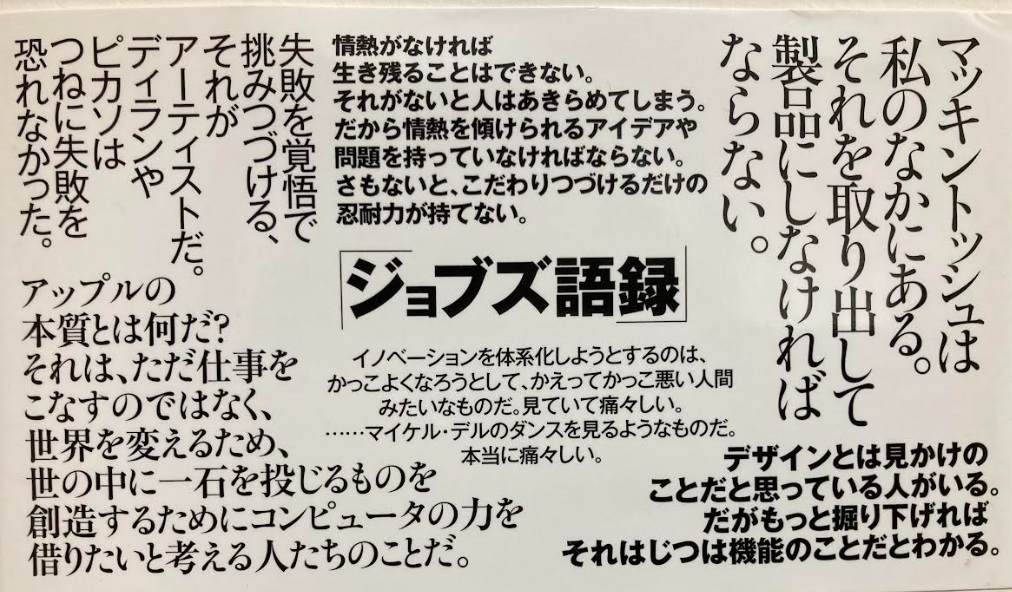 マッキントッシュは
私のなかにある。
それを取り出して
製品にしなければ
ならない。
情熱がなければ
生き残ることはできない。
それがないと人はあきらめてしまう。
だから情熱を傾けられるアイデアや
問題を持っていなければならない。
さもないと、こだわりつづけるだけの
忍耐力が持てない。
失敗を覚悟で
挑みつづける、
それが
アーティストだ。
ディランや
ピカソは
つねに失敗を
恐れなかった。
「ジョブズ語録」
アップルの
本質とは何だ?
それは、ただ仕事を
こなすのではなく、
世界を変えるため、
世の中に一石を投じるものを
創造するためにコンピュータの力を
借りたいと考える人たちのことだ。
イノベーションを体系化しようとするのは、
かっこよくなろうとして、かえってかっこ悪い人間
みたいなものだ。見ていて痛々しい。
……マイケル・デルのダンスを見るようなものだ。
本当に痛々しい。
デザインとは見かけの
ことだと思っている人がいる。
だがもっと掘り下げれば
それはじつは機能のことだとわかる。